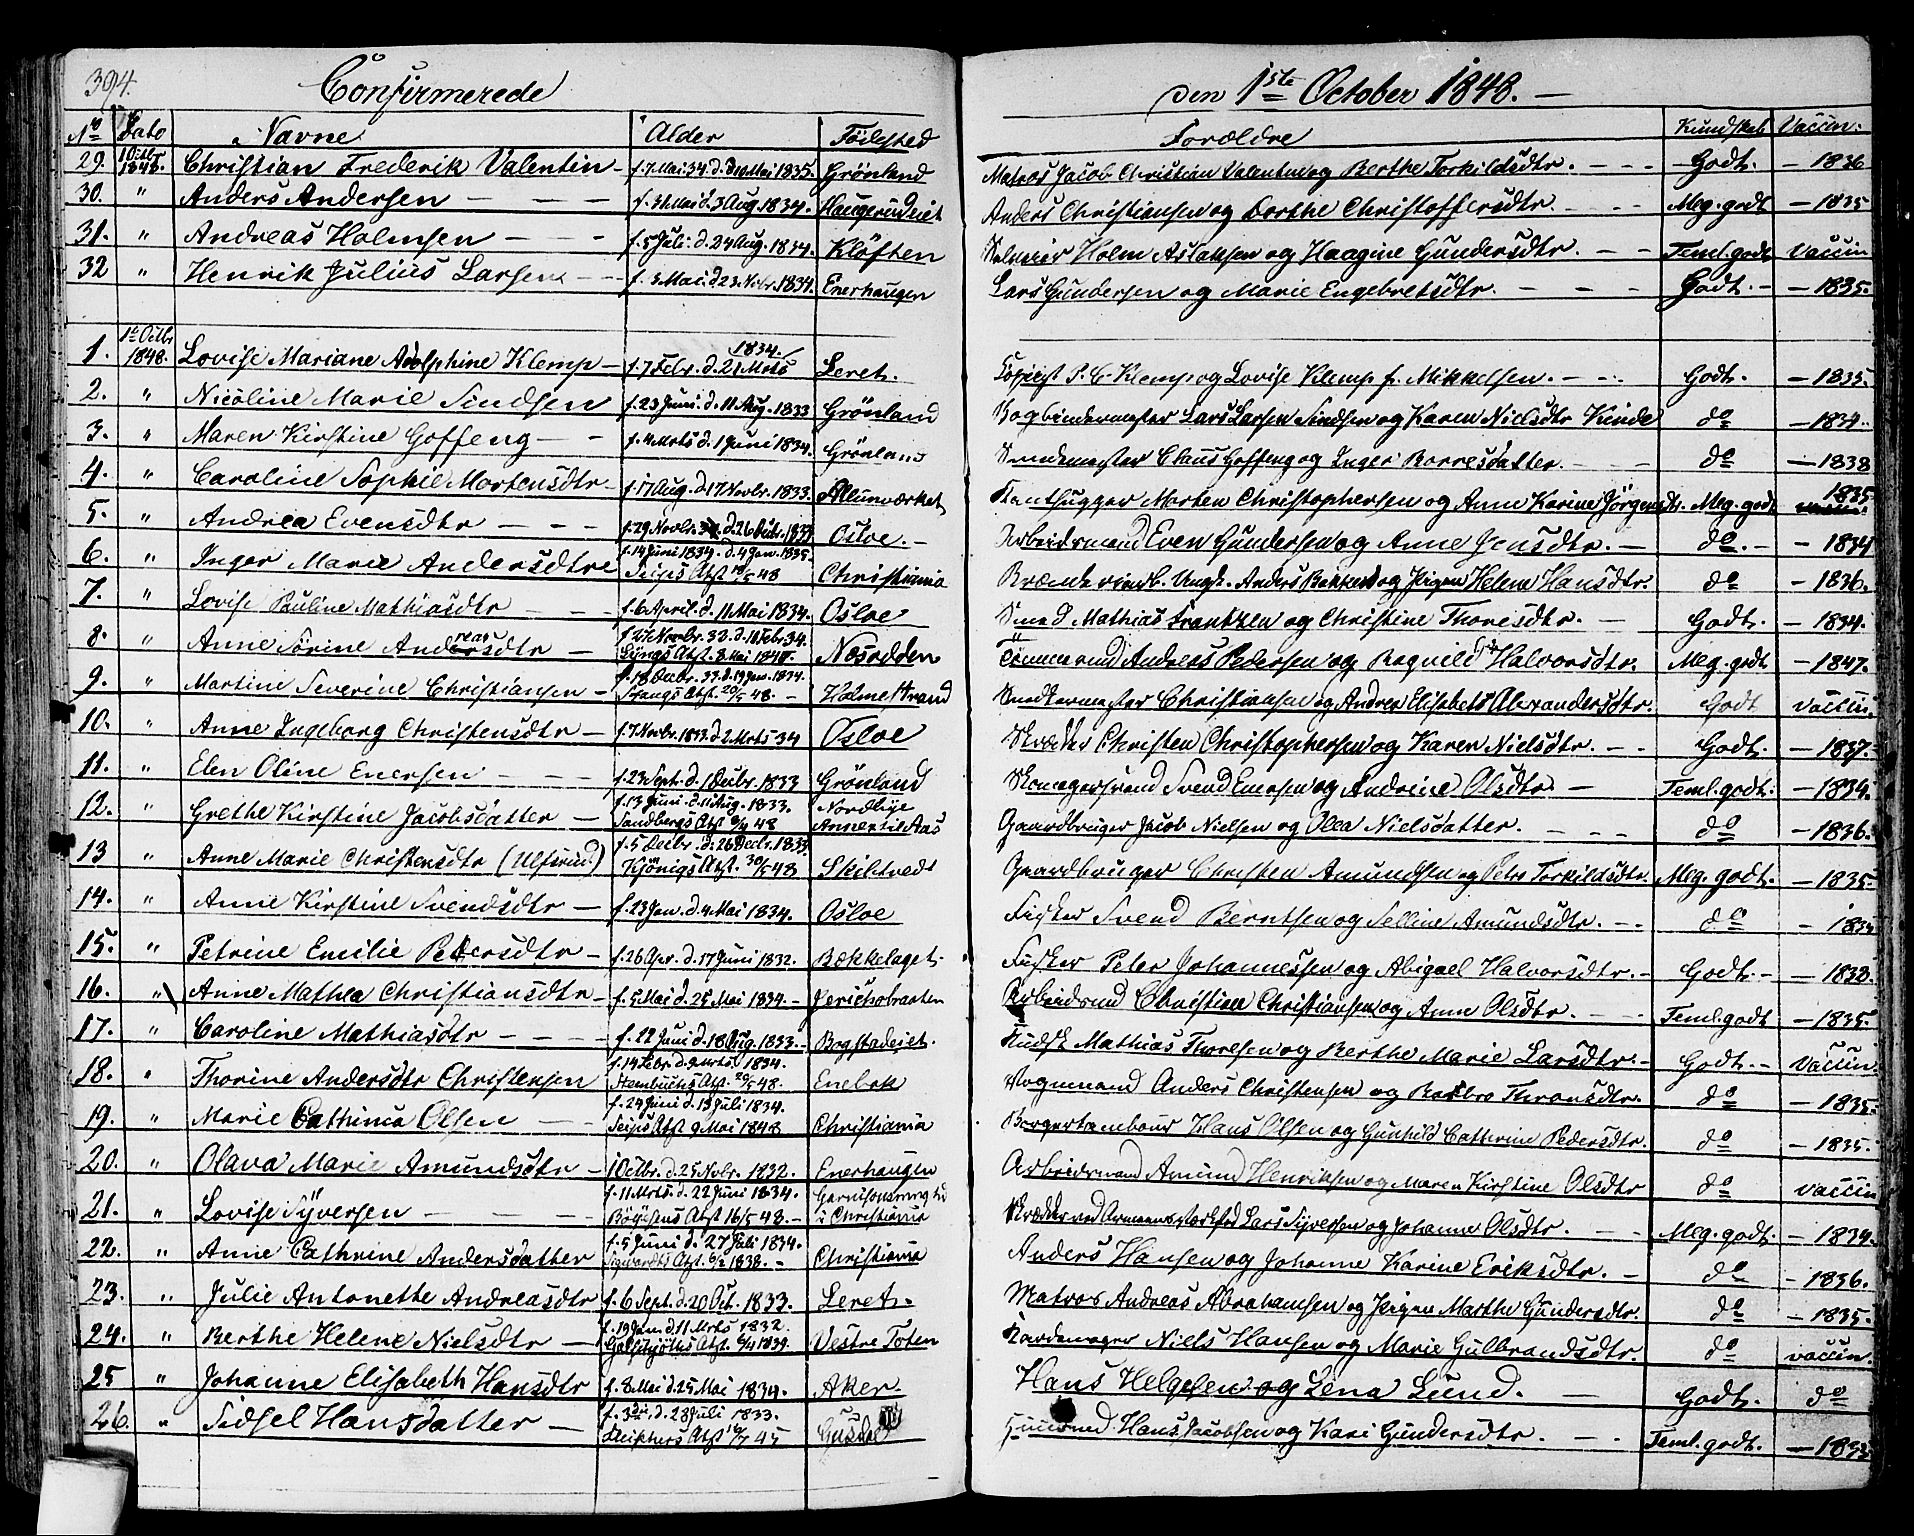 394.
Confirmerede
den 1ste October 1848.
No Dato Navne Alder Födested Forældre Kundskab Vaccin:
29. 1 Octbr 1848. Christian Frederik Valentin f. 7 Mai 34. d. d 10 Mai 1835. Grönland Matros Jacob Christian Valentin og Berthe Torkildsdtr. Godt. 1836
30. " Anders Andersen f. 31 Mai d. 3 Aug. 1834. Haugerudeiet Anders Christiansen og Dorthe Christoffersdtr. Meg. godt 1835
31. " Andreas Holmsen f. 5 Juli. d. 24 Aug. 1834. Klöften Holm Aslaksen og Haagine Gundersdtr. Teml. godt Vaccin
32 " Henrik Julius Larsen f. 3 Mai. d 23 Novbr. 1834. Enerhaugen Lars Gundersen og Marie Engebretsdtr. Godt. 1835.
1. 1ste Octbr 1848. Lovise Mariane Adolphine Klemp f. 7 Febr. d. 21 Mrts 1834. Leret. Copiist P. C. Klemp og Lovise Klemp f. Mikkelsen. Godt. 1835.
2. " Nicoline Marie Sindsen f. 23 Juni. d. 11 Aug. 1833 Grönland Bogbindermester Lars Larsen Sindsen og Karen Nielsdtr Kinde do 1834.
3. " Maren Kirstine Goffeng f. 4 Mrts d. 1 Juni 1834. Grönland Claus Goffeng og Inger Borresdatter. do 1838
4. " Caroline Sophie Mortensdtr. f. 17 Aug. d 17 Novbr. 1833. Alunværket Steenhugger Morten Christophersen og Anne Karine Jörgensdtr. Meg. godt 1835
5. " Andrea Evensdtr f. 29 Novbr. d. 26 Decbr. 1833 Osloe. Arbeidsmand Even Gundersen og Anne Jensdtr. do. 1834
6. " Inger Marie Andersdtr f. 14 Juni 1834. d. 4 Jan. 1835. Seips Atst 18/5 48 Christiania Brænderiindb. Ungk. Anders Bakken og Pigen Helene Hansdtr. do 1836.
7. " Lovise Pauline Mathiasdtr f. 6 April. d. 11 Mai 1834. Osloe Smed Mathias Frantzen og Christine Thoresdtr. Godt. 1834.
8. " Anne Sörine Andreasdtr f. 27 Novbr. 33. d. 1 Febr. 34. Lyngs Atst. 8 Mai 1848. Næsodden Tömmermd Andreas Pedersen og Ragnild Halvorsdtr. Meg. godt 1847.
9. " Martine Severine Christiansen f. 18 Decbr. 33. d. 19 Jan. 1834. Atst. 20/5 48. Holmestrand Snedkermester Christiansen og Andrea Elisabeth Alexandersdtr. Godt Vaccin.
10. " Anne Ingeborg Christensdtr f. 7 Novbr. 1833. d. 2 Mrts 34 Osloe Skrædder Christen Christophersen og Karen Nielsdtr. Godt. 1837.
11. " Elen Oline Enersen f. 23 Sept. d. 1 Decbr. 1833 Grönland Skomagersvend Svend Enersen og Andrine Olsdtr Teml. godt. 1834.
12. " Grethe Kirstine Jacobsdatter f. 13 Juni. d. 11 Aug. 1833. Sandbergs Atst 48 Nordbye Annex til Aas Gaardbruger Jacob Nielsen og Olea Nielsdatter. do 1836.
13 " Anne Marie Christensdtr (Ulfsrud) f. 5 Decbr. d. 26 Decbr. 1833 Königs Atst. 30/5 48 Skibtvedt Gaardbruger Christen Amundsen og Petra Torkildsdtr. Meg. godt. 1835.
14. " Anne Kirstine Svendsdtr f. 23 Jan. d. 4 Mai 1834. Osloe Fisker Svend Berntsen og Selline Amundsdtr. do
15. " Petrine Emilie Pedersdtr f. 26 Apr. d. 17 Juni 1832. Bækkelaget. Fisker Peter Johannessen og Abigael Halvorsdtr. Godt. 1838.
16. " Anne Mathea Christiansdtr f. 5 Mai d. 25 Mai 1834. Jerichobraaten Arbeidsmd Christian Christiansen og Anne Olsdtr. Teml. godt 1835.
17. " Caroline Mathiasdtr f. 22 Juni d. 18 Aug. 1833. Bogstadeiet. Kudsk Mathias Thoresen og Berthe Marie Larsdtr. Godt. Vaccin
18. " Thorine Andersdtr Christensen f. 14 Febr. d. 9 Mrts. 1834. Steenbuchs Atst. 20/5 48. Enebak Vognmand Anders Christensen og Barbro Thronsdtr. do 1835.
19. " Marie Cathinca Olsen f. 24 Juni d. 13 Juli 1834. Seips Atst 9 Mai 1848 Christiania Borgertambour Hans Olsen og Gunhild Cathrine Pedersdtr. do 1835.
20. " Olava Marie Amundsdtr 1 Octbr. d. 25 Novbr. 1832. Enerhaugen Arbeidsmand Amund Henriksen og Maren Kirstine Olsdtr do vaccin
21. " Lovise Syversen f. 11 Mrts. d. 22 Juni 1834. Atst 16/5 48. Garnisonsmenigh. i Christiania Skrædder ved Lars Syversen og Johanne Olsdtr. Meg. godt. 1834.
22. " Anne Cathrine Andersdatter f. 5 Juni d. 27 Juli 1834. Sigwardts Atst. 1838. Christiania Anders Hansen og Johanne Karine Eriksdtr. do 1836.
23. " Julie Antonette Andreasdtr f. 6 Sept. d. 20 Oct. 1833. Leret. Matros Andreas Abrahamsen og Pigen Marthe Gundersdtr. do 1835.
24. " Berthe Helene Nielsdtr f. 19 Jan. d. 11 Mrts 1832. Atst. 1839. Vestre Toten Niels Hansen og Marie Gulbrandsdtr. do vaccin.
25 " Johanne Elisabeth Hansdtr f. 8 Mai d. 25 Mai 1834. Aker Hans Helgesen og Lena Lund. Godt. do
26. " Sidsel Hansdatter f. 3die. d. 28 Juli 1833. Atst 45 Huusmd Hans Jacobsen og Kari Gundersdtr. Teml. godt.